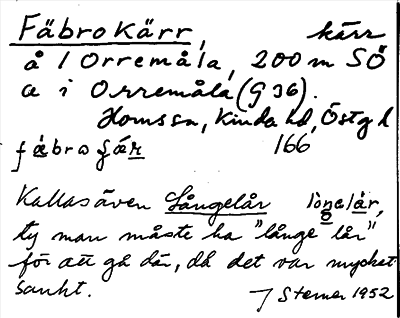 Fäbrokärr, kärr
å / Orremåla, 200 m SÖ
a i Orremåla (G 36).
Hornssn, Kinda hd, Östg l
fäbro 166
Kallas även Långelår
ty man måste ha "långe lår"
för att gå där, då det var mycket
sankt. J Sterner 1952